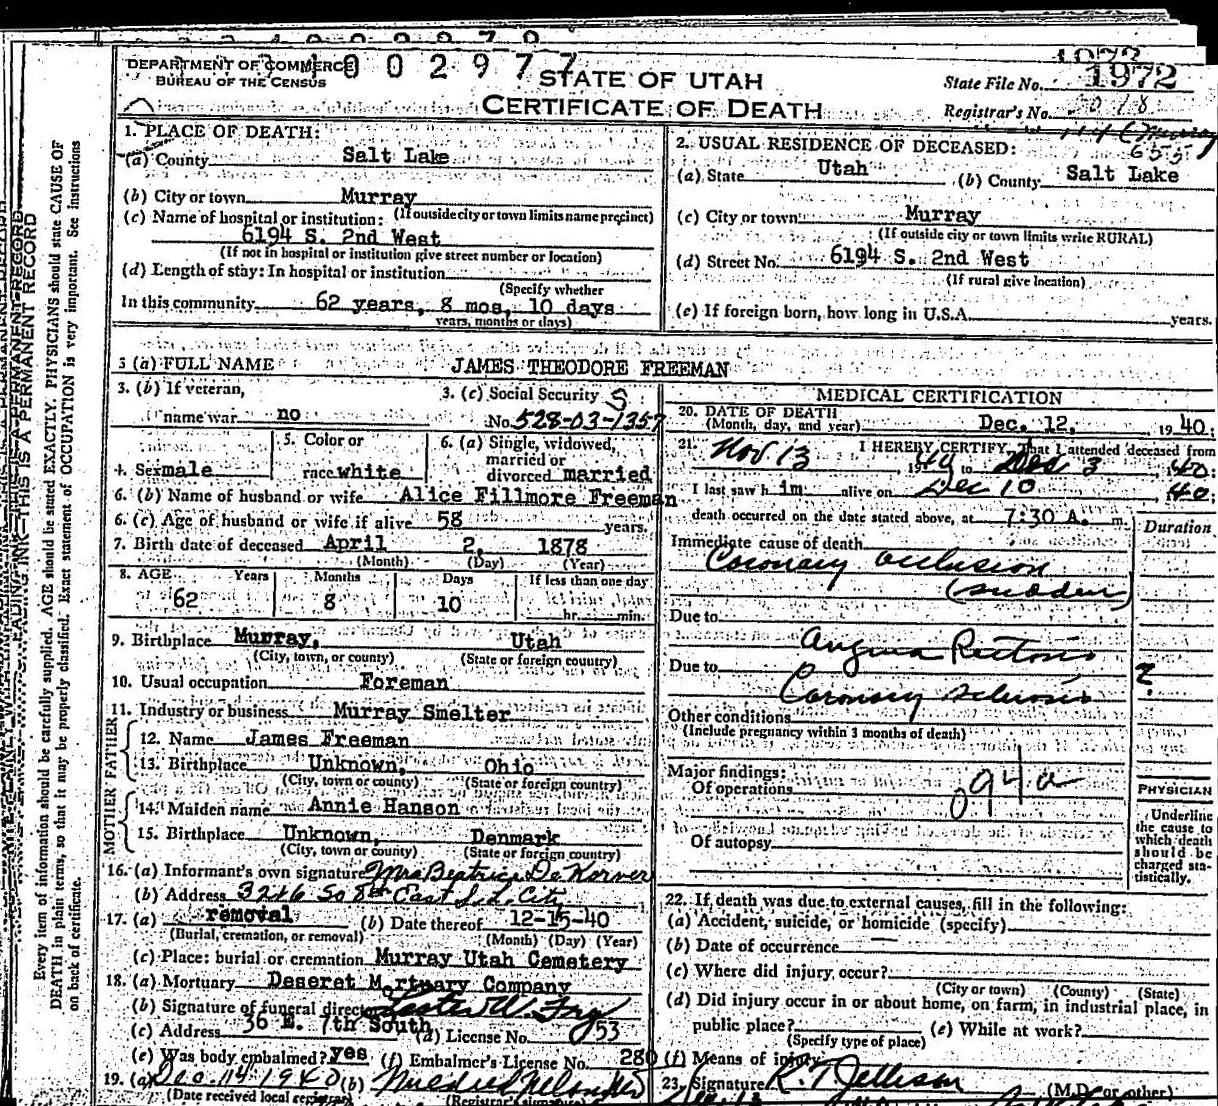 DEPARTMENT OF COMMERCE
BUREAU OF THE CENSUS
1002977
STATE OF UTAH
CERTIFICATE OF DEATH
State File No. 1972
Registrar's No.
1. PLACE OF DEATH:
(a) County Salt Lake
(b) City or town Murray
(If outside city or town limits name precinct)
(c) Name of hospital or institution:
6194 S. 2nd West
(If not in hospital or institution give street number or location)
(d) Length of stay: In hospital or institution
(Specify whether
In this community 62 years, 8 mos, 10 days
years, months or days)
2. USUAL RESIDENCE OF DECEASED:
655
(a) State Utah (b) County Salt Lake
(c) City or town Murray
(If outside city or town limits write RURAL)
(d) Street No. 6194 S. 2nd West
(If rural give location)
(e) If foreign born, how long in U.S.A. years.
3 (a) FULL NAME JAMES THEODORE FREEMAN
3. (b) If veteran,
name war no
3. (c) Social Security
No. 528-03-1357
4. Sex male
5. Color or
race white
6. (a) Single, widowed,
married or
divorced married
6. (b) Name of husband or wife Alice Fillmore Freeman
6. (c) Age of husband or wife if alive 58 years.
7. Birth date of deceased April 2, 1878
(Month) (Day) (Year)
8. AGE Years Months Days If less than one day
62 8 10 hr. min.
9. Birthplace Murray, Utah
(City, town, or county) (State or foreign country)
10. Usual occupation Foreman
11. Industry or business Murray Smelter
FATHER
12. Name James Freeman
13. Birthplace Unknown, Ohio
(City, town or county) (State or foreign country)
MOTHER
14. Maiden name Annie Hanson
15. Birthplace Unknown, Denmark
(City, town or county) (State or foreign country)
16. (a) Informant's own signature Mrs Beatrice De Korver
(b) Address 3216 So 8th East S.L. City
17. (a) removal (b) Date thereof 12-15-40
(Burial, cremation, or removal) (Month) (Day) (Year)
(c) Place: burial or cremation Murray Utah Cemetery
18. (a) Mortuary Deseret Mortuary Company
(b) Signature of funeral director
(c) Address 36 E. 7th South (d) License No. 53
(e) Was body embalmed? yes (f) Embalmer's License No. 280
19. (a) Dec. 14 1940 (b) Mildred
(Date received local registrar) (Registrar's signature)
MEDICAL CERTIFICATION
20. DATE OF DEATH
(Month, day, and year) Dec. 12, 1940;
21. I HEREBY CERTIFY, That I attended deceased from
Nov 13 1940 to Dec 3, 40;
I last saw him alive on Dec 10, 40;
death occurred on the date stated above, at 7:30 A. m.
Duration
Immediate cause of death
Coronary occlusion
(sudden)
Due to
Angina Pectoris
Due to ?
Coronary sclerosis
Other conditions
(Include pregnancy within 3 months of death)
Major findings:
Of operations
094a
Of autopsy
PHYSICIAN
Underline
the cause to
which death
should be
charged sta-
tistically.
22. If death was due to external causes, fill in the following:
(a) Accident, suicide, or homicide (specify)
(b) Date of occurrence
(c) Where did injury occur?
(City or town) (County) (State)
(d) Did injury occur in or about home, on farm, in industrial place, in
public place? (e) While at work?
(Specify type of place)
(f) Means of injury
23. Signature K. T. Jellison
(M.D. or other)
Every item of information should be carefully supplied. AGE should be stated EXACTLY. PHYSICIANS should state CAUSE OF
DEATH in plain terms, so that it may be properly classified. Exact statement of OCCUPATION is very important. See instructions
on back of certificate.